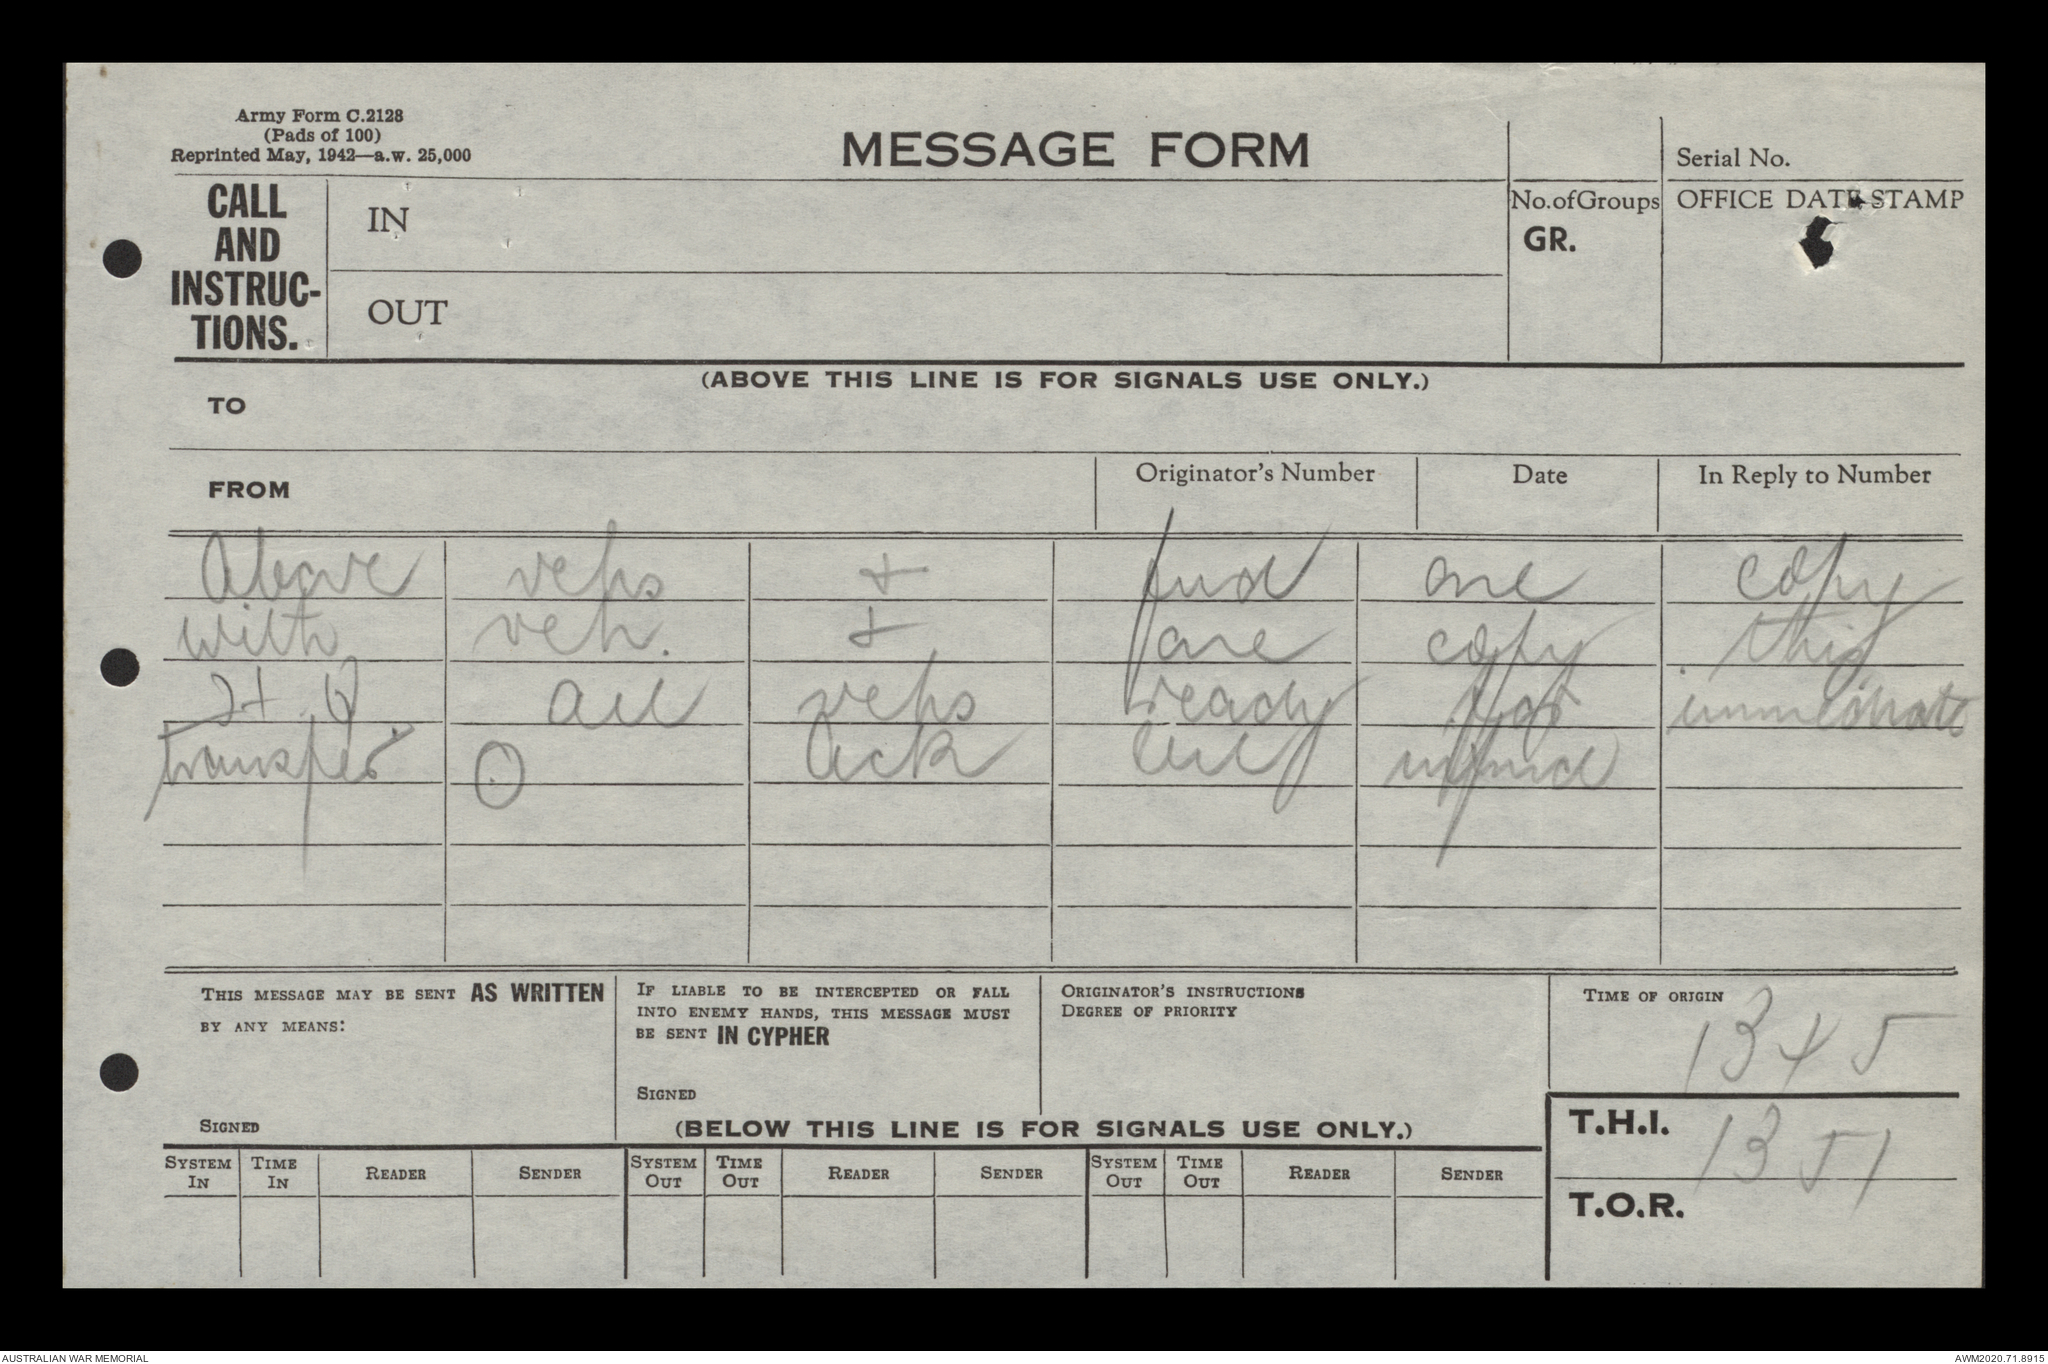 Army Form C.2128
(Pads of 100)
Reprinted May, 1942—a.w. 25,000
MESSAGE FORM
Serial No.
CALL AND INSTRUC-TIONS.
IN
OUT
No.ofGroups
GR.
OFFICE DATE STAMP
(ABOVE THIS LINE IS FOR SIGNALS USE ONLY.)
TO
FROM
Originator's Number
Date
In Reply to Number
Above vehs + fwd one copy
with veh. + one copy this
all vehs ready for immediate
transfer O ack
THIS MESSAGE MAY BE SENT AS WRITTEN
BY ANY MEANS:
SIGNED
IF LIABLE TO BE INTERCEPTED OR FALL
INTO ENEMY HANDS, THIS MESSAGE MUST
BE SENT IN CYPHER
SIGNED
ORIGINATOR'S INSTRUCTIONS
DEGREE OF PRIORITY
TIME OF ORIGIN
1345
(BELOW THIS LINE IS FOR SIGNALS USE ONLY.)
T.H.I. 1351
T.O.R.
SYSTEM IN TIME IN READER SENDER SYSTEM OUT TIME OUT READER SENDER SYSTEM OUT TIME OUT READER SENDER
AUSTRALIAN WAR MEMORIAL
AWM2020.71.8915